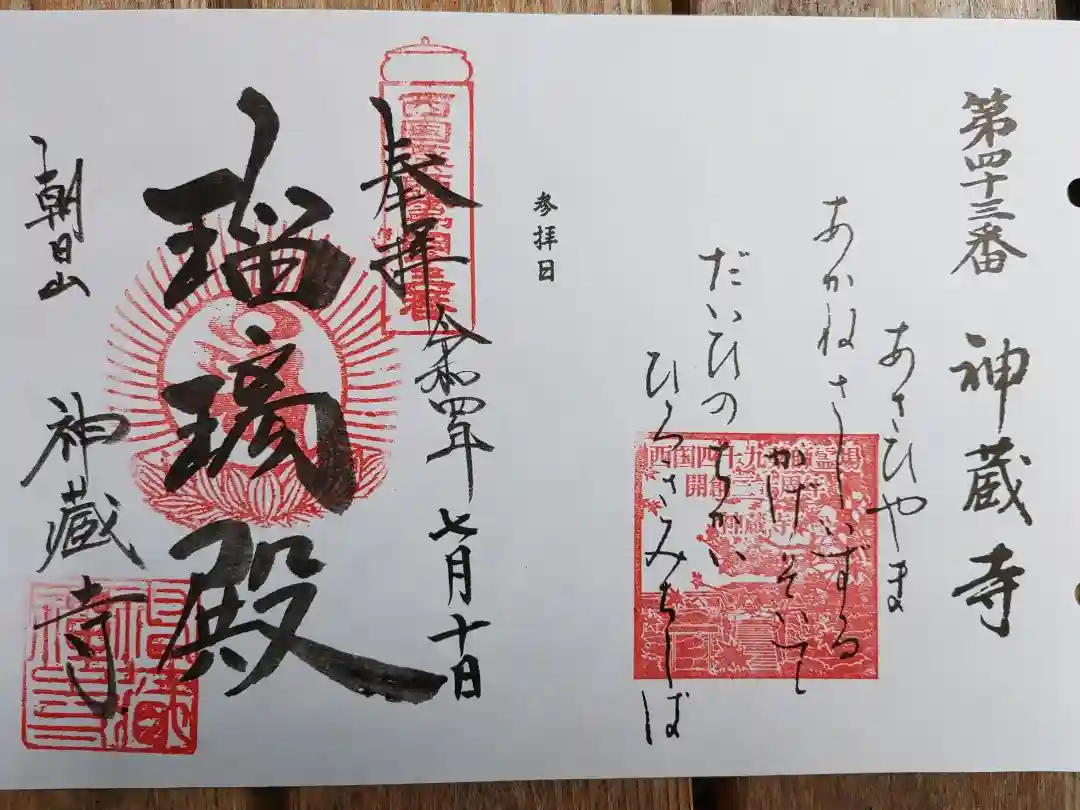 第四十三番 神蔵寺
あさひやま
あかねさしいずる
かげそいて
だいひのちかい
ひらさみちしば
参拝日
奉拝
令和四年七月十日
瑠璃殿
朝日山 神蔵寺